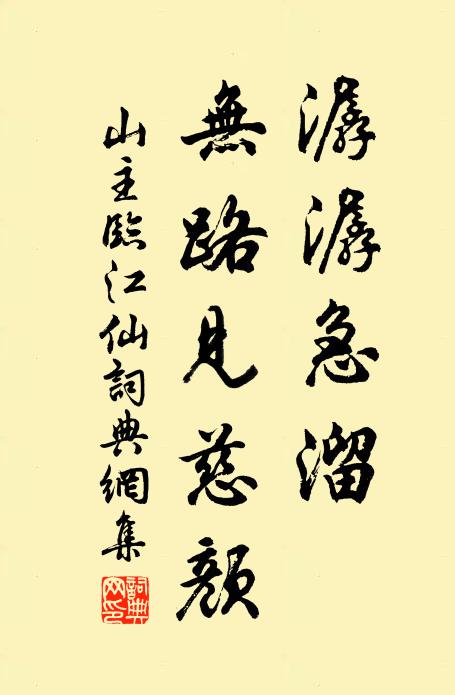 潺潺急溜
無路見慈顏
山主臨江仙詞典網集
詞典网印